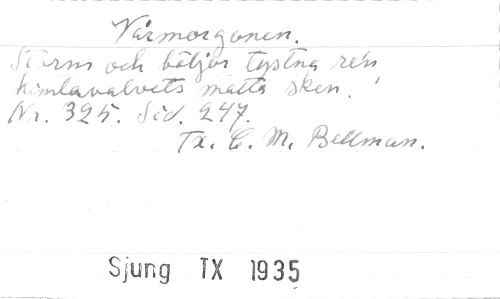 Vårmorgonen.
Storm och böljor tystna re'n
himlavalvets matta sken.
Nr. 325. Sid. 247.
Tx. C. M. Bellman.
Sjung IX 1935